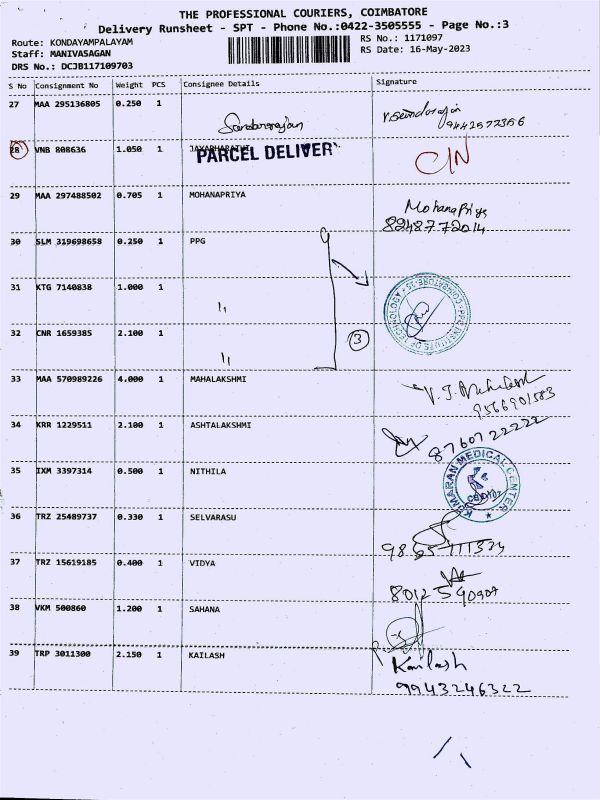 THE PROFESSIONAL COURIERS, COIMBATORE
Delivery Runsheet - SPT - Phone No.:0422-3505555 - Page No.:3
Route: KONDAYAMPALAYAM
RS No.: 1171097
Staff: MANIVASAGAN
RS Date: 16-May-2023
DRS No.: DCJB117109703
S No Consignment No Weight PCS Consignee Details Signature
27 MAA 295136805 0.250 1
28 VNB 808636 1.050 1
PARCEL DELIVER
C/N
29 MAA 297488502 0.705 1 MOHANAPRIYA
MohanaPriya
8248772014
30 SLM 319698658 0.250 1 PPG
31 KTG 7140838 1.000 1
32 CNR 1659385 2.100 1
3
33 MAA 570989226 4.000 1 MAHALAKSHMI
9566901583
34 KRR 1229511 2.100 1 ASHTALAKSHMI
8760722222
35 IXM 3397314 0.500 1 NITHILA
KUMARAN MEDICAL CENTER
36 TRZ 25489737 0.330 1 SELVARASU
37 TRZ 15619185 0.400 1 VIDYA
38 VKM 500860 1.200 1 SAHANA
39 TRP 3011300 2.150 1 KAILASH
Kailash
9943246322